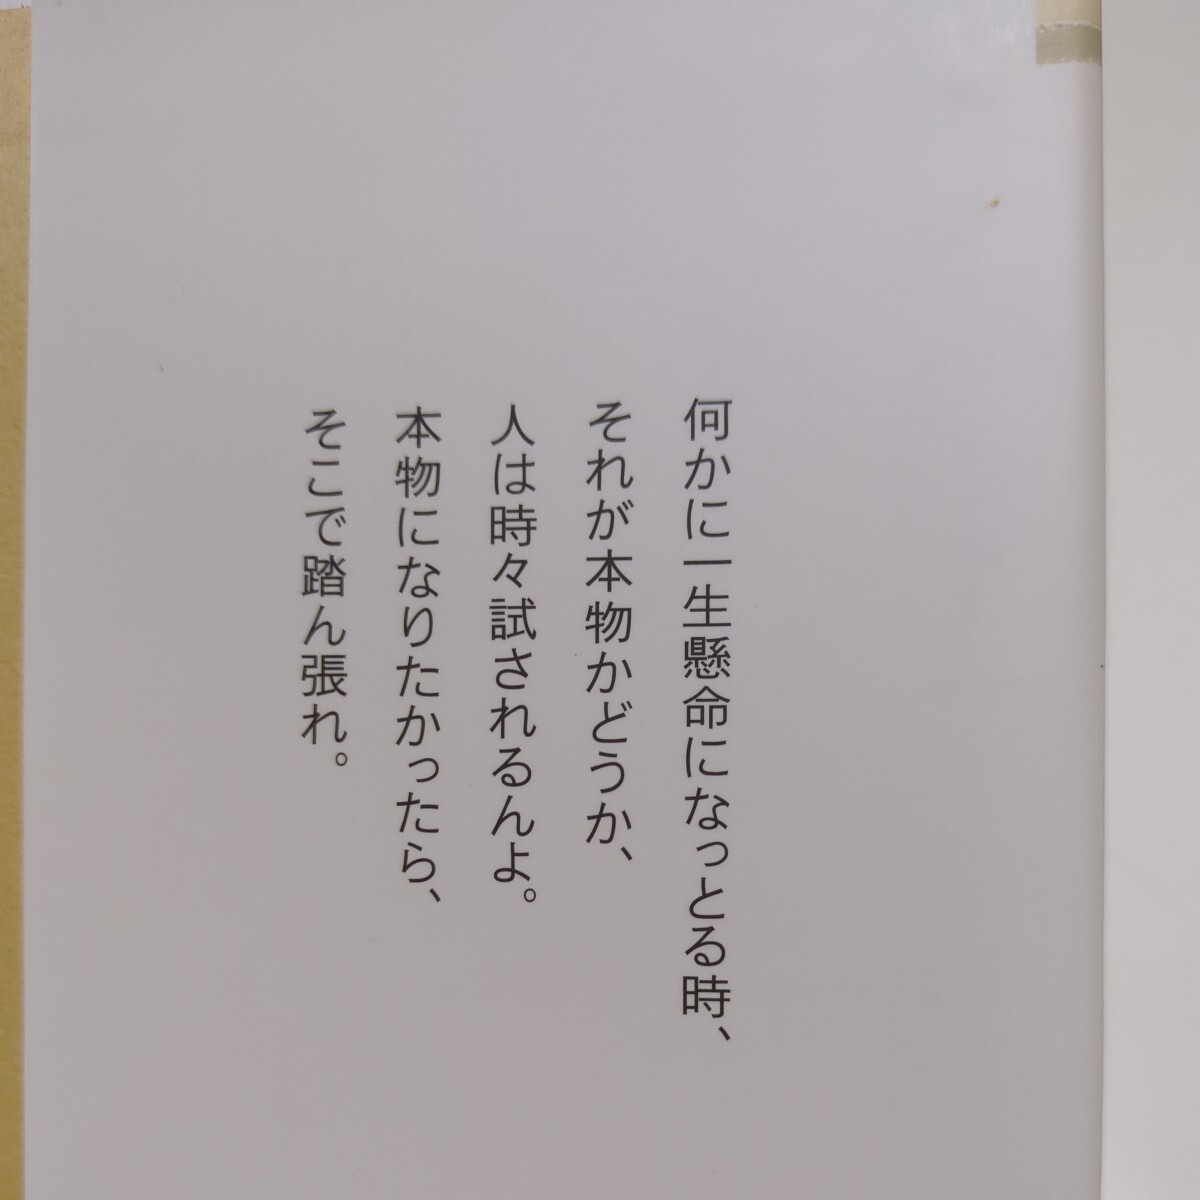 何かに一生懸命になっとる時、
それが本物かどうか、
人は時々試されるんよ。
本物になりたかったら、
そこで踏ん張れ。